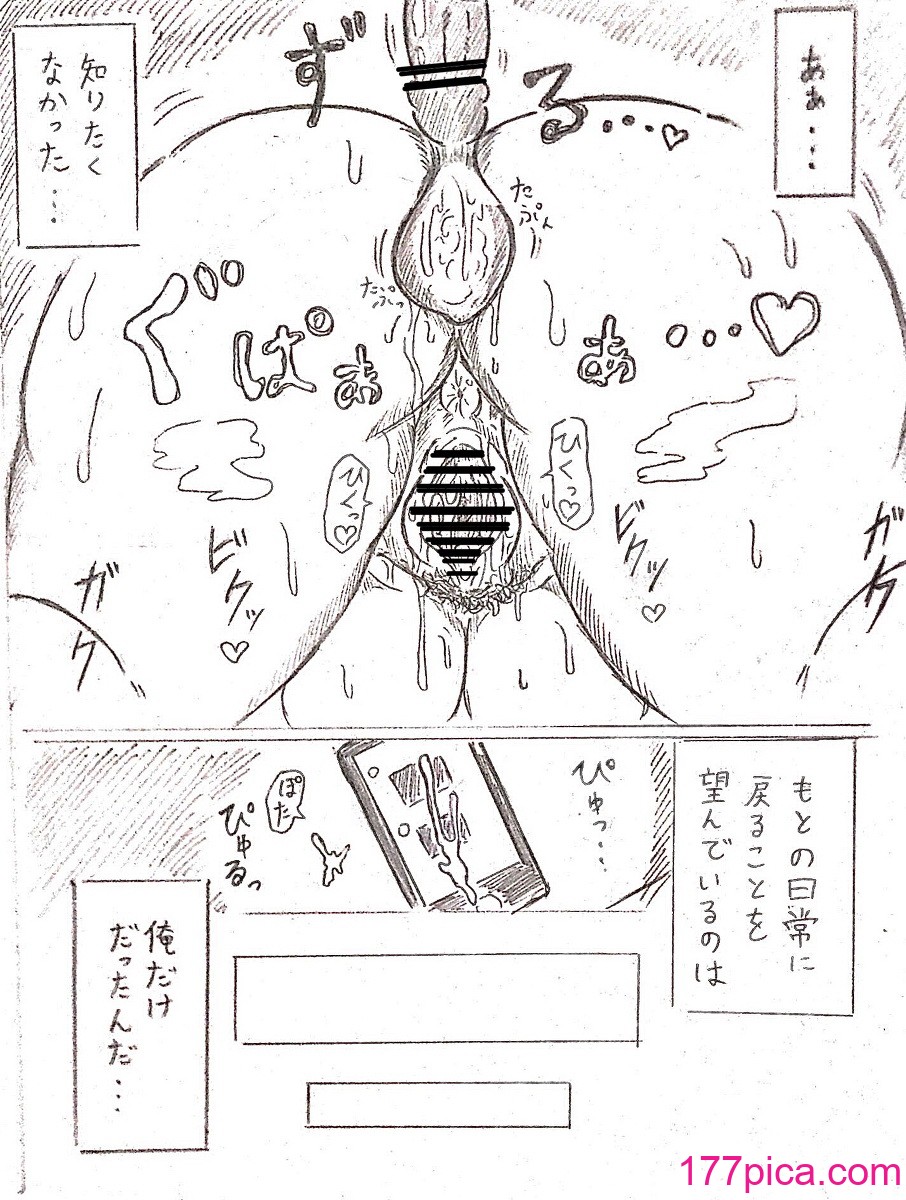 ああ・・・
ずる・・・♡
知りたく
なかった・・・
たぷん
たぷっ
ぐぱぁ
ぁ・・・♡
ひくっ♡
ひくっ♡
ガク
ビクッ♡
ビクッ♡
ガク
もとの日常に
戻ることを
望んでいるのは
ぴゅっ・・・
ぽた
ぴゅるっ
俺だけ
だったんだ・・・
177pica.com